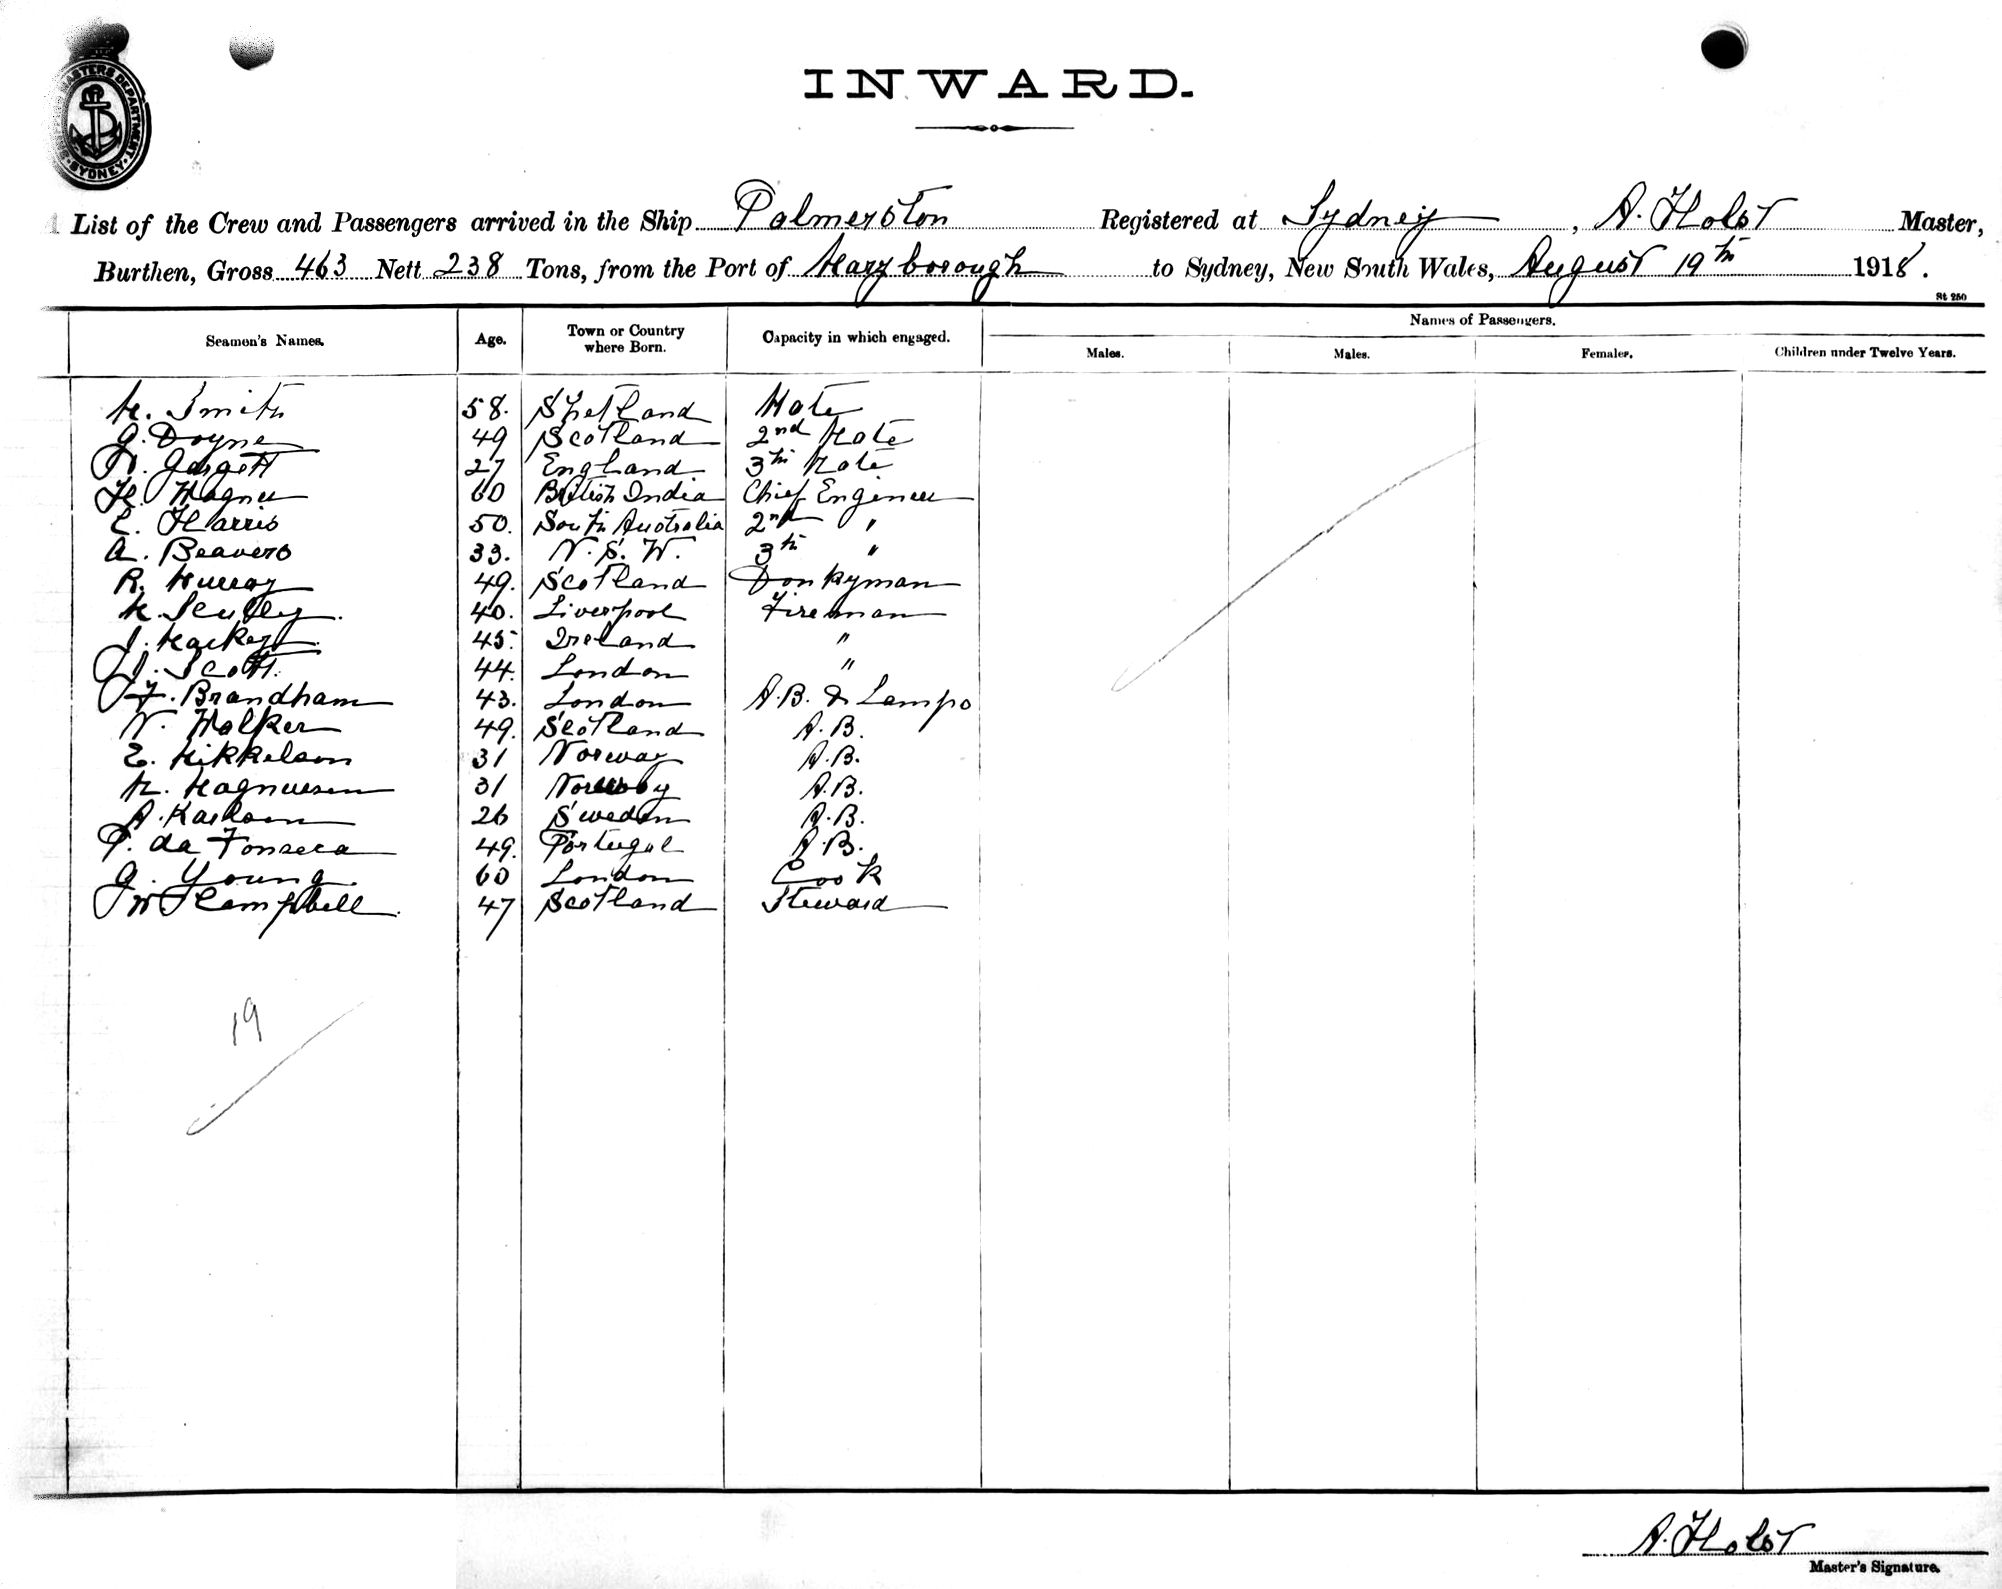 MASTERS DEPARTMENT SYDNEY
INWARD.
List of the Crew and Passengers arrived in the Ship Palmerston Registered at Sydney, A. Holst Master,
Burthen, Gross 463 Nett 238 Tons, from the Port of Maryborough to Sydney, New South Wales, August 19th 1918.
St 250
Seamen's Names. Age. Town or Country where Born. Capacity in which engaged. Names of Passengers.
Males. Males. Females. Children under Twelve Years.
M. Smith 58. Shetland Mate
G. Doyne 49 Scotland 2nd Mate
W. Gargett 27 England 3th Mate
H. Wagner 60 British India Chief Engineer
E. Harris 50. South Australia 2nd "
A. Beavers 33. N. S. W. 3th "
R. Murray 49. Scotland Donkyman
M. Scully. 40. Liverpool Fireman
J. Mackey 45. Ireland "
J. Scott. 44. London "
F. Brandham 43. London A.B. & Lamps
N. Walker 49. Scotland A.B.
E. Mikkelson 31 Norway A.B.
M. Magnussen 31 Norway A.B.
A. Karlson 26 Sweden A.B.
P. da Fonseca 49. Portugal A.B.
G. Young. 60 London Cook
J W Campbell. 47 Scotland Steward
19
A. Holst
Master's Signature.